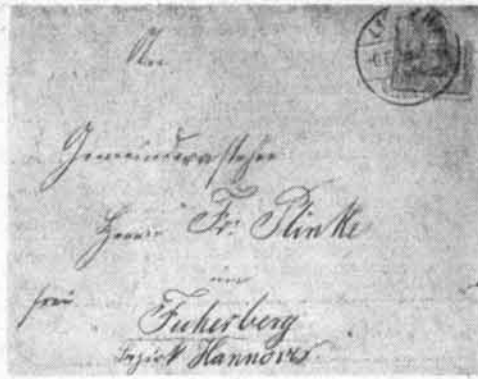 An
Gemeindevorsteher
Herrn Fr: Plinke
in
frei
Fuherberg
Bezirk Hannover.